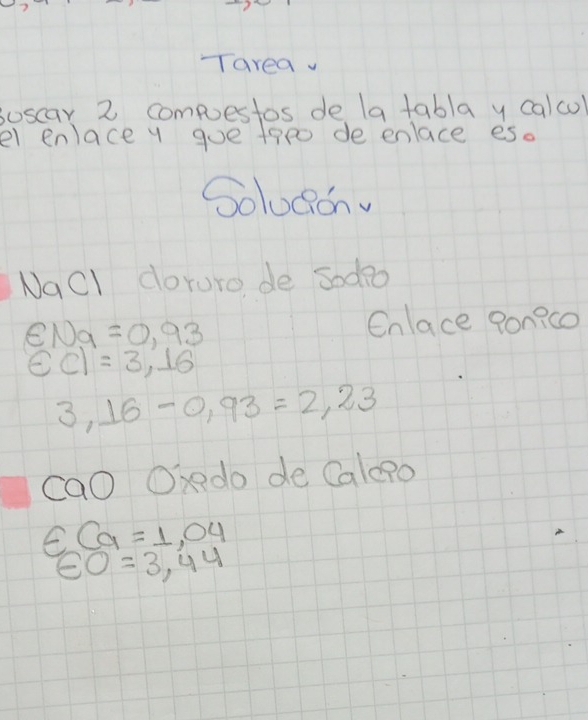 Tarea
Buscar 2 compuestos de la tabla y calcul
el enlace y que tipo de enlace es.
Solución
NaCl cloruro de sodio
ЄNa = 0,93 Enlace ionico
ЄCl = 3,16
3,16 - 0,93 = 2,23
CaO Oxido de Calcio
ЄCa = 1,04
ЄO = 3,44